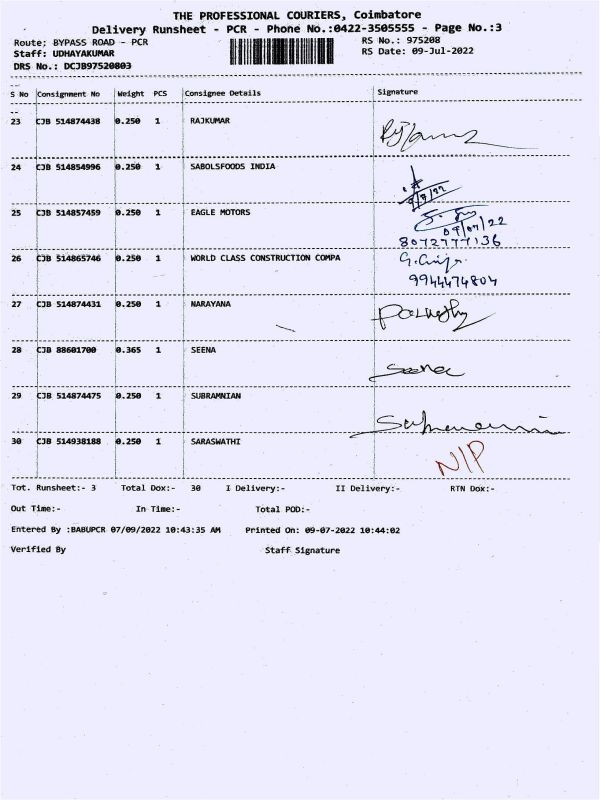 THE PROFESSIONAL COURIERS, Coimbatore
Delivery Runsheet - PCR - Phone No.:0422-3505555 - Page No.:3
Route; BYPASS ROAD - PCR RS No.: 975208
Staff: UDHAYAKUMAR RS Date: 09-Jul-2022
DRS No.: DCJB97520803
S No Consignment No Weight PCS Consignee Details Signature
23 CJB 514874438 0.250 1 RAJKUMAR
24 CJB 514854996 0.250 1 SABOLSFOODS INDIA
9/7/22
25 CJB 514857459 0.250 1 EAGLE MOTORS
09/07/22
8072777136
26 CJB 514865746 0.250 1 WORLD CLASS CONSTRUCTION COMPA
9944474804
27 CJB 514874431 0.250 1 NARAYANA
28 CJB 88601700 0.365 1 SEENA
Seena
29 CJB 514874475 0.250 1 SUBRAMNIAN
30 CJB 514938188 0.250 1 SARASWATHI N/P
Tot. Runsheet:- 3 Total Dox:- 30 I Delivery:- II Delivery:- RTN Dox:-
Out Time:- In Time:- Total POD:-
Entered By :BABUPCR 07/09/2022 10:43:35 AM Printed On: 09-07-2022 10:44:02
Verified By Staff Signature